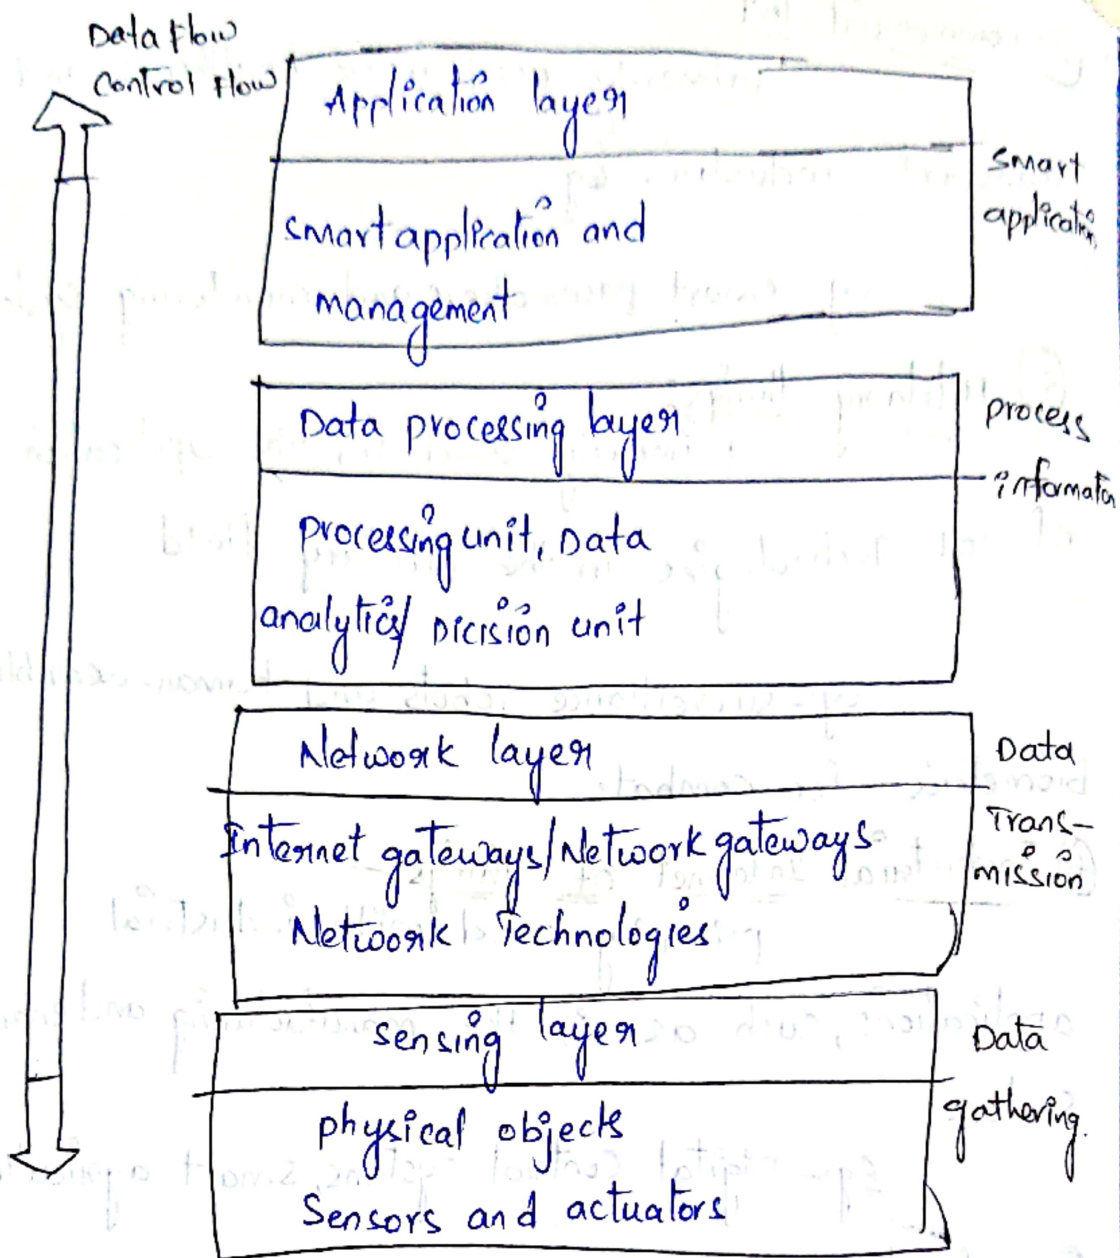 Data flow
Control flow
Application layer
smart application and
management
smart
application
Data processing layer
processing unit, Data
analytics/ Dicision unit
process
information
Network layer
Internet gateways/Network gateways
Network Technologies
Data
Trans-
mission
sensing layer
physical objects
Sensors and actuators
Data
gathering.